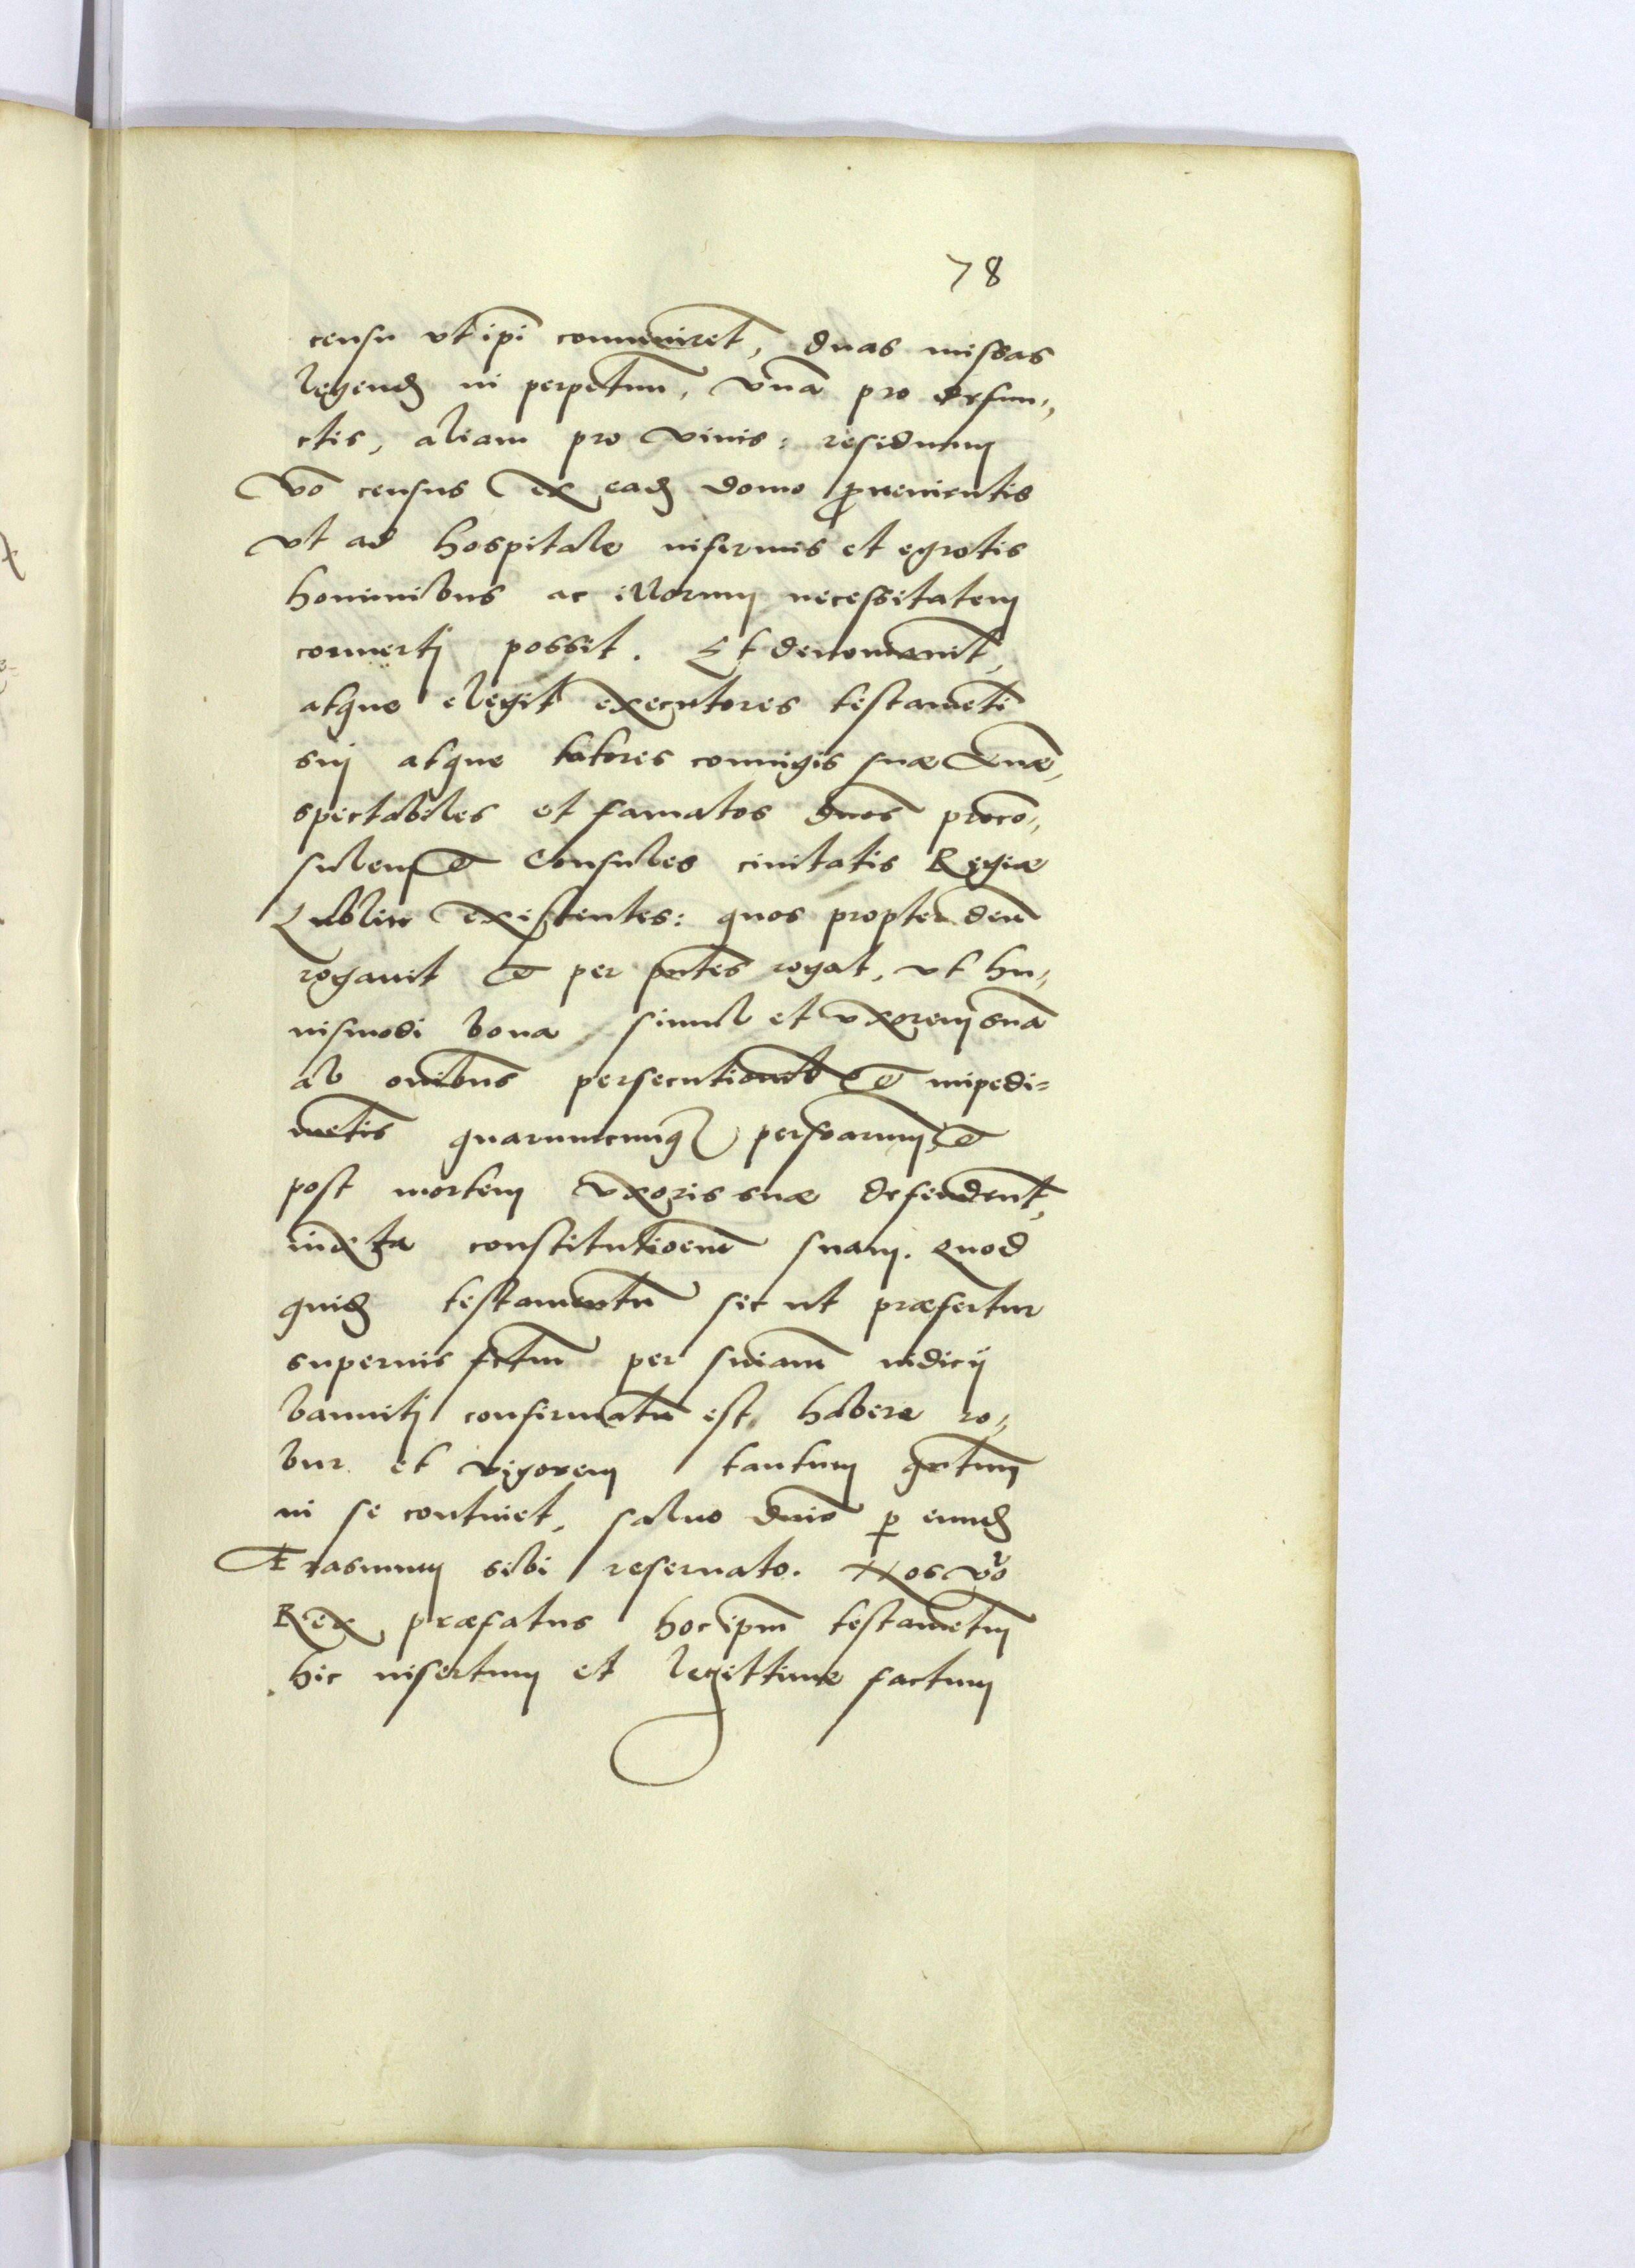 78
censu vt ipi conueniret, duas missas
legend in perpetuu, vna pro defun,,
ctis, aliam pro viuis: residuum
vo census ex ead domo prouenientis
vt ad hospitale infirmis et egrotis
hominibus ac illorum necessitatem
conuertj possit. Et denominauit,
atque elegit executores testameti
suj atque tutores coniugis suæ
spectabiles et famatos dnos proco,,
sulem et Consules ciuitatis Regiæ
Lublin existentes: quos propter deu
rogauit et per pntes rogat, vt hu,,
iusmodi bona simul et vxorem sua
ab oibus persecutionib et impedi=
metis quarumcunq personarum, et
post mortem vxoris suæ defenderet,
iuxta constitutioem suam. Quod
quid testamentu sic ut præfertur
superius fctm per sniam iudicij
bannitj confirmatu est, habere ro,,
bur et vigorem tantum qntum
in se continet, saluo dnio p eund
Erasmum sibi reseruato. Nos vo
Rex præfatus hoc ipm testametum
hic insertum et legittime factum